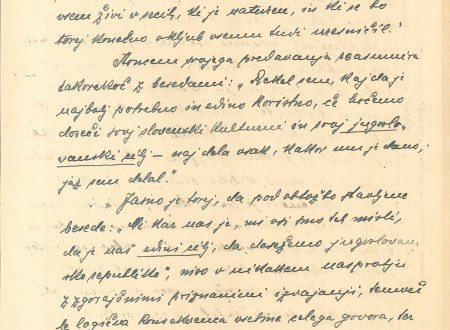 vsem živi v srcih, ki je naturen, in ki se bo
torej končno vkljub vsemu tudi uresničil."
Pomen svojega predavanja
takorekoč z besedami: „Rekel sem, kaj da je
najbolj potrebno in edino koristno, če hočemo
doseči svoj slovenski kulturni in svoj jugoslo-
vanski cilj – naj dela vsak, kakor mu je dano,
jaz sem delal."
Jasno je torej, da pod obtožbo stavljene
besede: „Ni kar nas je, mi vsi smo teh misli,
da je naš edini cilj, da dosežemo jugoslovan-
sko republiko", niso v nikakem nasprotju
z zgorajšnimi priznanimi izvajanji, temveč
le logična konsekvenca vsebine celega govora, ter